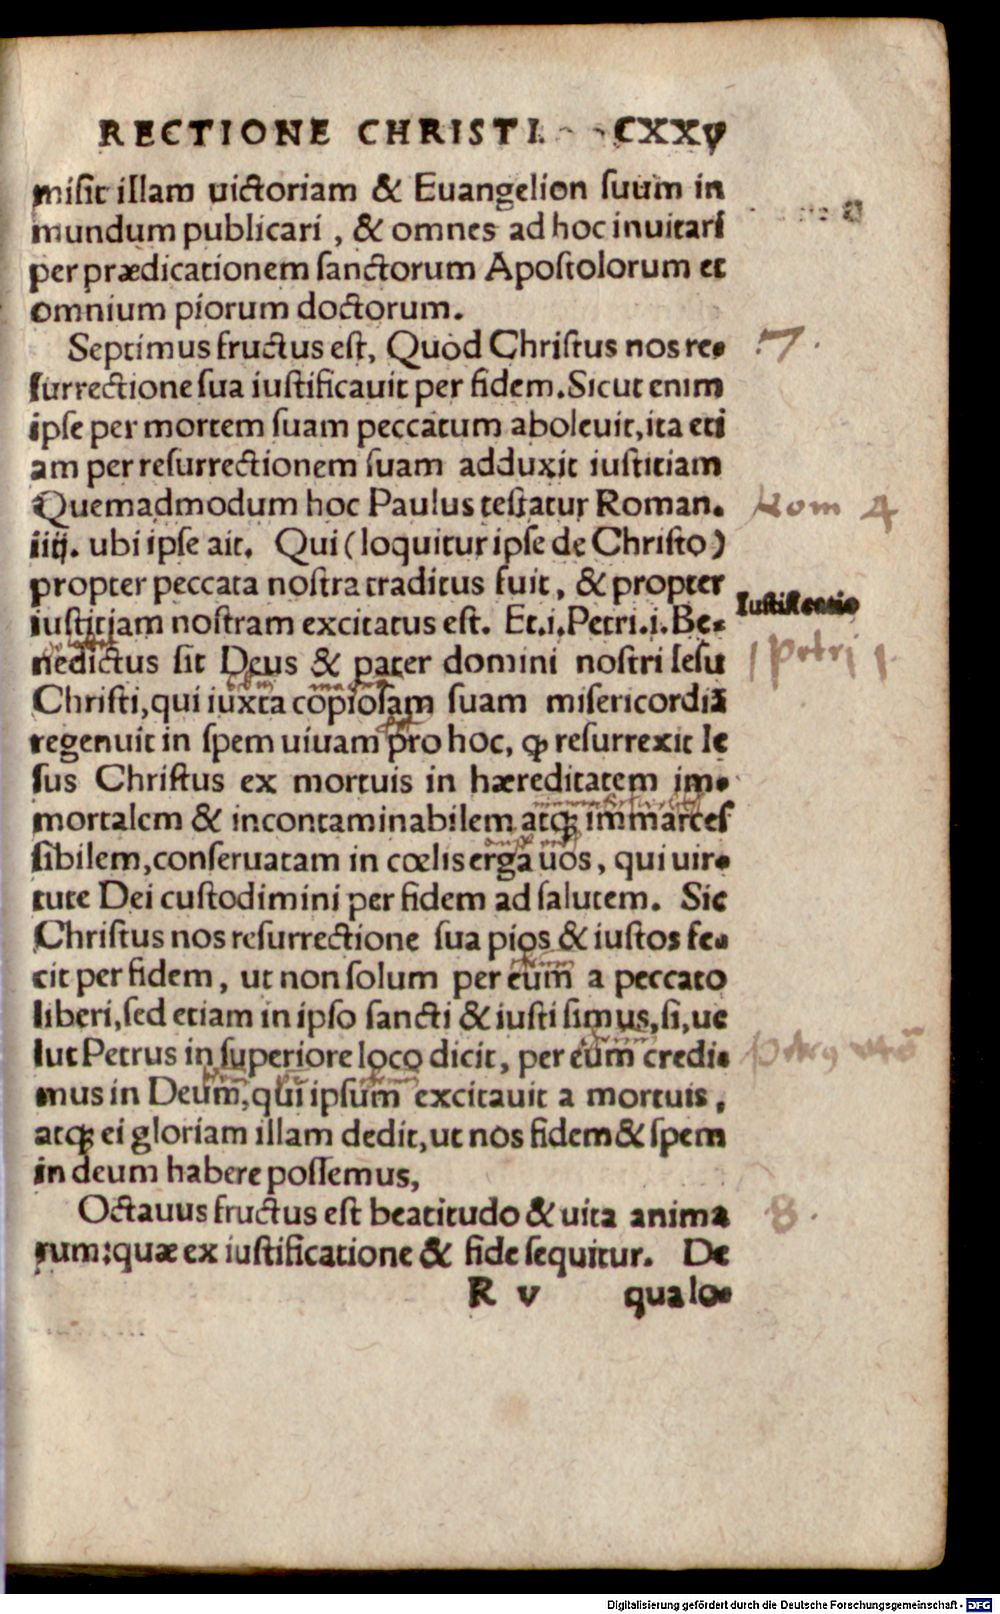 RECTIONE CHRISTI. CXXV
misit illam uictoriam & Euangelion suum in
mundum publicari, & omnes ad hoc inuitari
per prædicationem sanctorum Apostolorum et
omnium piorum doctorum.
Septimus fructus est, Quod Christus nos re-
7.
surrectione sua iustificauit per fidem. Sicut enim
ipse per mortem suam peccatum aboleuit, ita eti
am per resurrectionem suam adduxit iustitiam
Quemadmodum hoc Paulus testatur Roman.
Rom 4
iiij. ubi ipse ait. Qui (loquitur ipse de Christo)
propter peccata nostra traditus fuit, & propter
Iustificatio
iustitiam nostram excitatus est. Et.i.Petri.i.Be-
nedictus sit Deus & pater domini nostri Iesu
1 Petri 1.
Christi, qui iuxta copiosam suam misericordiã
regenuit in spem uiuam pro hoc, ꝙ resurrexit Ie
sus Christus ex mortuis in hæreditatem im-
mortalem & incontaminabilem atqꝫ immarces
sibilem, conseruatam in cœlis erga uos, qui uir-
tute Dei custodimini per fidem ad salutem. Sic
Christus nos resurrectione sua pios & iustos fe-
cit per fidem, ut non solum per eum a peccato
liberi, sed etiam in ipso sancti & iusti simus, si, ue
lut Petrus in superiore loco dicit, per eum credi-
Petrus
mus in Deum, qui ipsum excitauit a mortuis,
atqꝫ ei gloriam illam dedit, ut nos fidem & spem
in deum habere possemus,
Octauus fructus est beatitudo & uita anima
8.
rum: quæ ex iustificatione & fide sequitur. De
R v qua lo-
Digitalisierung gefördert durch die Deutsche Forschungsgemeinschaft - DFG